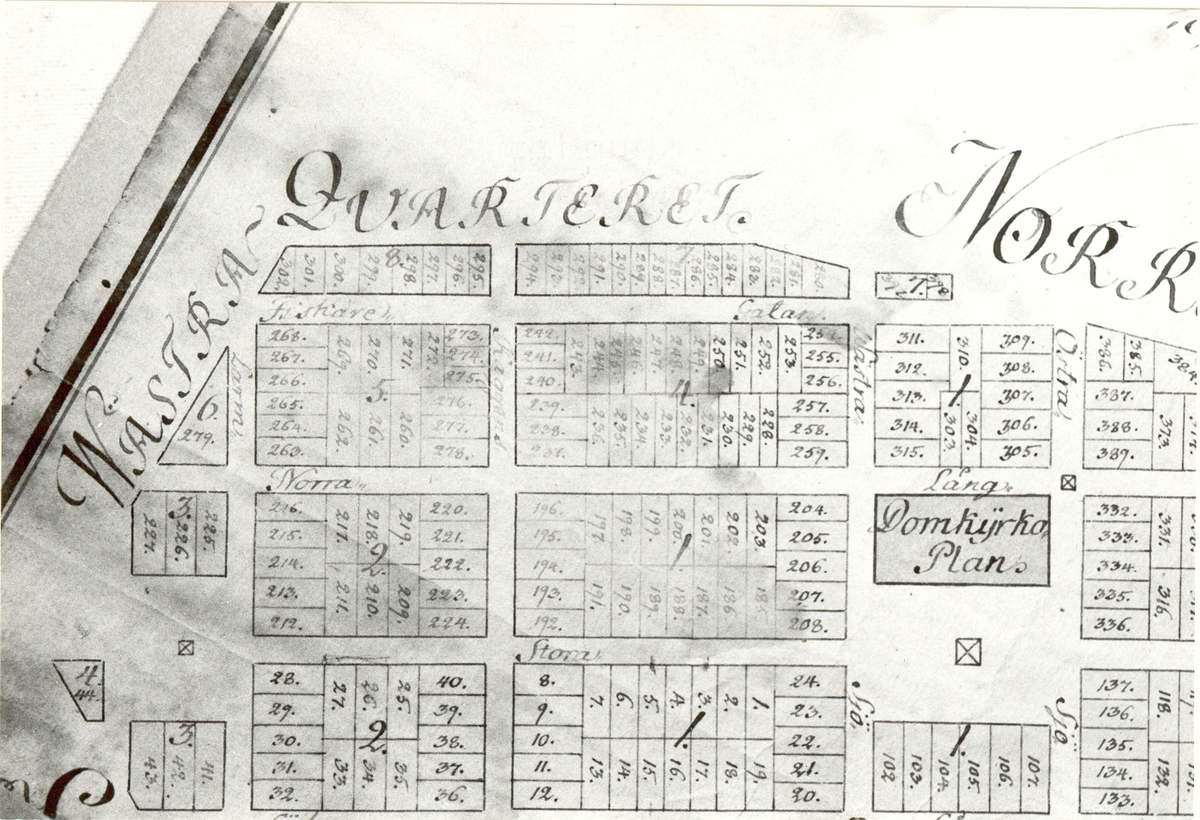 WÄSTRA QVARTERET.
NORR
302. 301. 300. 299. 298. 297. 296. 295.
8.
294. 293. 292. 291. 290. 289. 288. 287. 286. 285. 284. 283. 282. 281. 280.
7.
7.
Fiskare
Gatan
268. 269. 270. 271. 272. 273.
267. 274.
266. 275.
5.
265. 276.
264. 262. 261. 260. 277.
263. 278.
242. 243. 244. 245. 246. 247. 248. 249. 250. 251. 252. 253. 254.
241. 255.
240. 256.
4.
239. 236. 235. 234. 233. 232. 231. 230. 229. 228. 257.
238. 258.
237. 259.
Västra
311. 310. 309.
312. 308.
313. 1. 307.
314. 303. 304. 306.
315. 305.
Östra
386. 385. 384.
387.
388. 373.
389.
6.
279.
Norra
Lång
3.
227. 226. 225.
216. 217. 218. 219. 220.
215. 221.
214. 2. 222.
213. 211. 210. 209. 223.
212. 224.
196. 197. 198. 199. 200. 201. 202. 203. 204.
195. 205.
194. 1. 206.
193. 191. 190. 189. 188. 187. 186. 185. 207.
192. 208.
Domkÿrko
Plan
332.
333. 331.
334.
335. 316.
336.
Stora
4.
44.
3.
43. 42. 41.
28. 27. 26. 25. 40.
29. 39.
30. 2. 38.
31. 33. 34. 35. 37.
32. 36.
8. 7. 6. 5. 4. 3. 2. 1. 24.
9. 23.
10. 1. 22.
11. 13. 14. 15. 16. 17. 18. 19. 21.
12. 20.
Sjö
1.
102. 103. 104. 105. 106. 107.
Sjö
137. 118.
136.
135.
134. 132.
133.